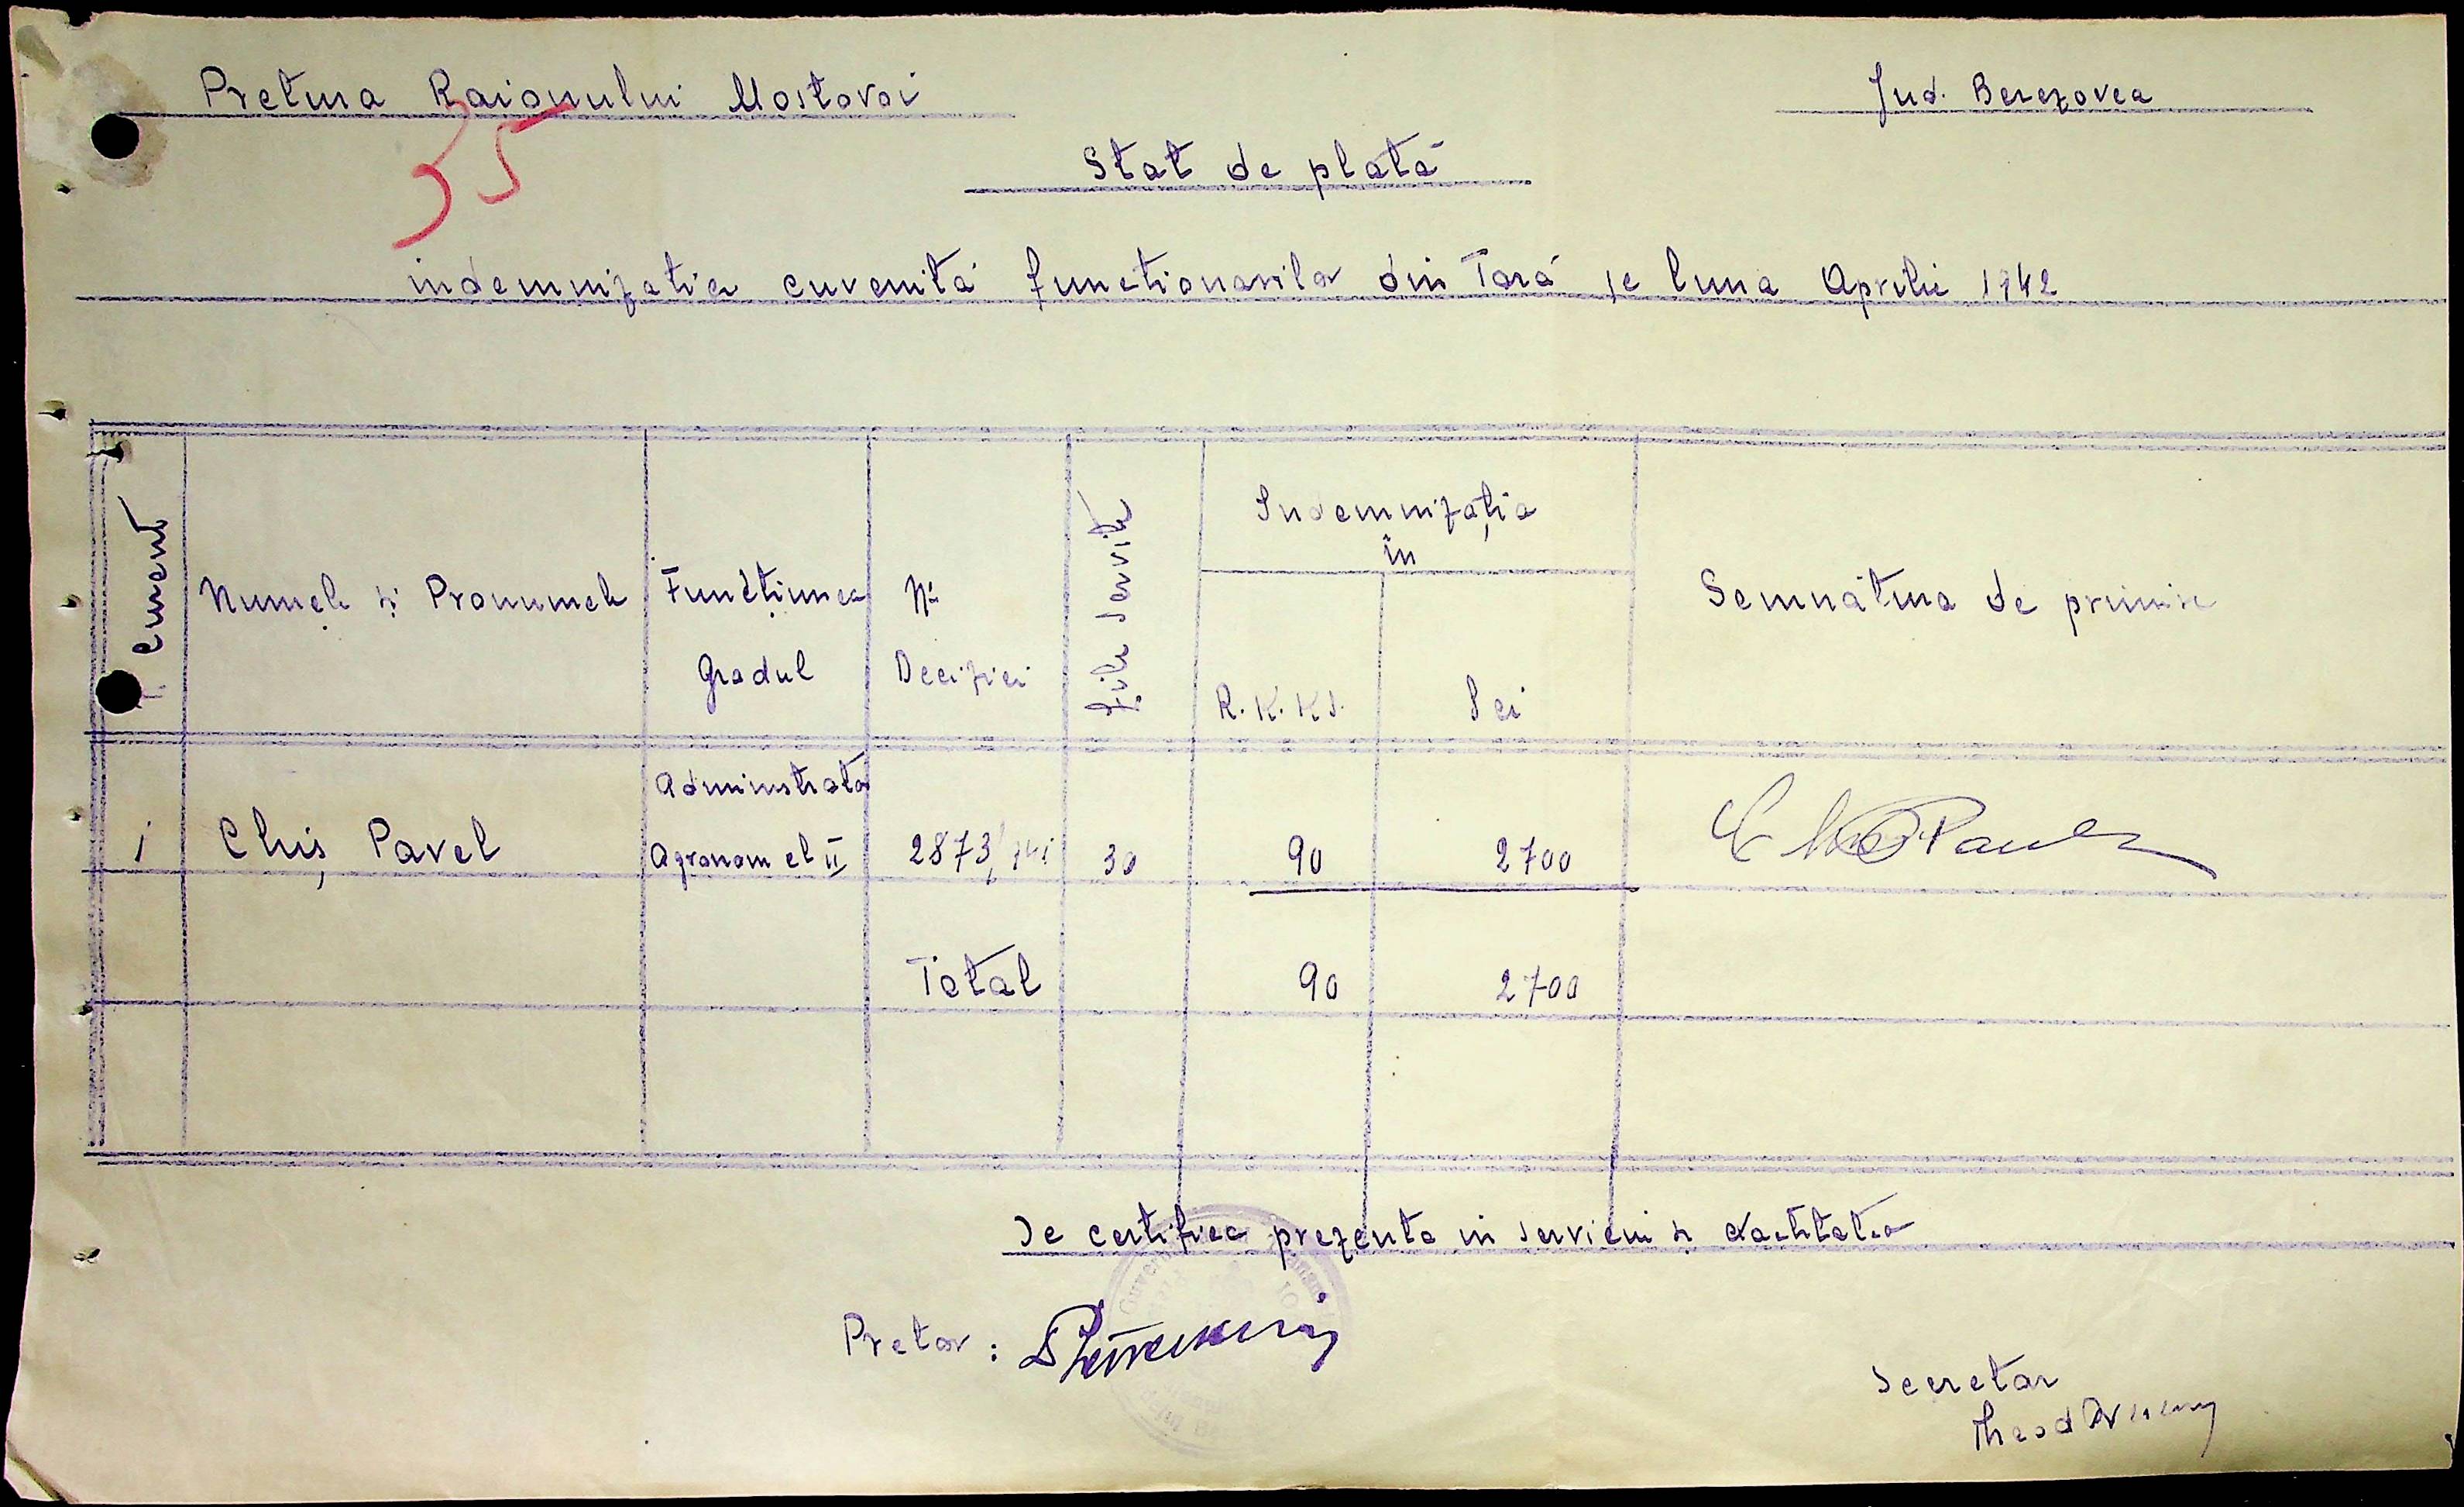 Pretura Raionului Mostovoi
Jud. Berezovca
35
Stat de plată
indemnizatia cuvenită functionarilor din Tară pe luna Aprilie 1942
curent
Numele și Pronumele
Functiunea
Gradul
Nr
Deciziei
Zile servite
Indemnizația
în
R.K.KS.
Lei
Semnătura de primire
1 Chiș Pavel
Administrator
Agronom cl II
2873/941 30 90 2700
Total 90 2700
Se certifica prezenta in serviciu si exactitatea
Pretor:
Secretar